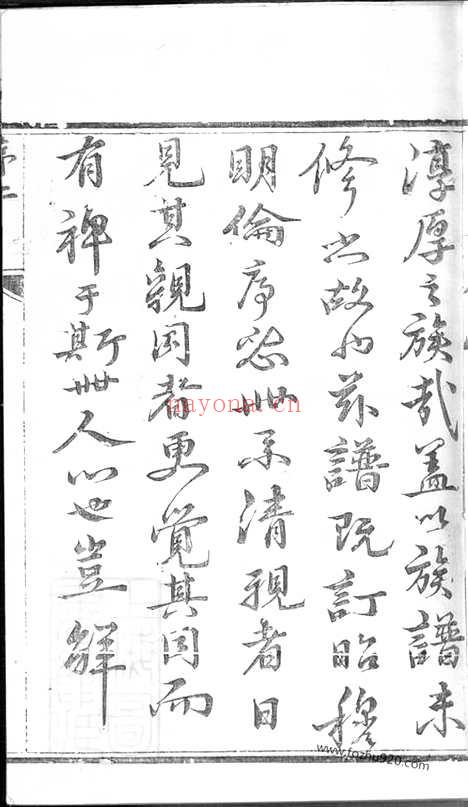 淳厚之族哉蓋以族譜未
修之故也茲譜既訂昭穆
明倫序悉世系清視者日
見其親因者更覺其因而
有裨于斯世人心也豈鮮
nayona.cn
www.fozhu920.com